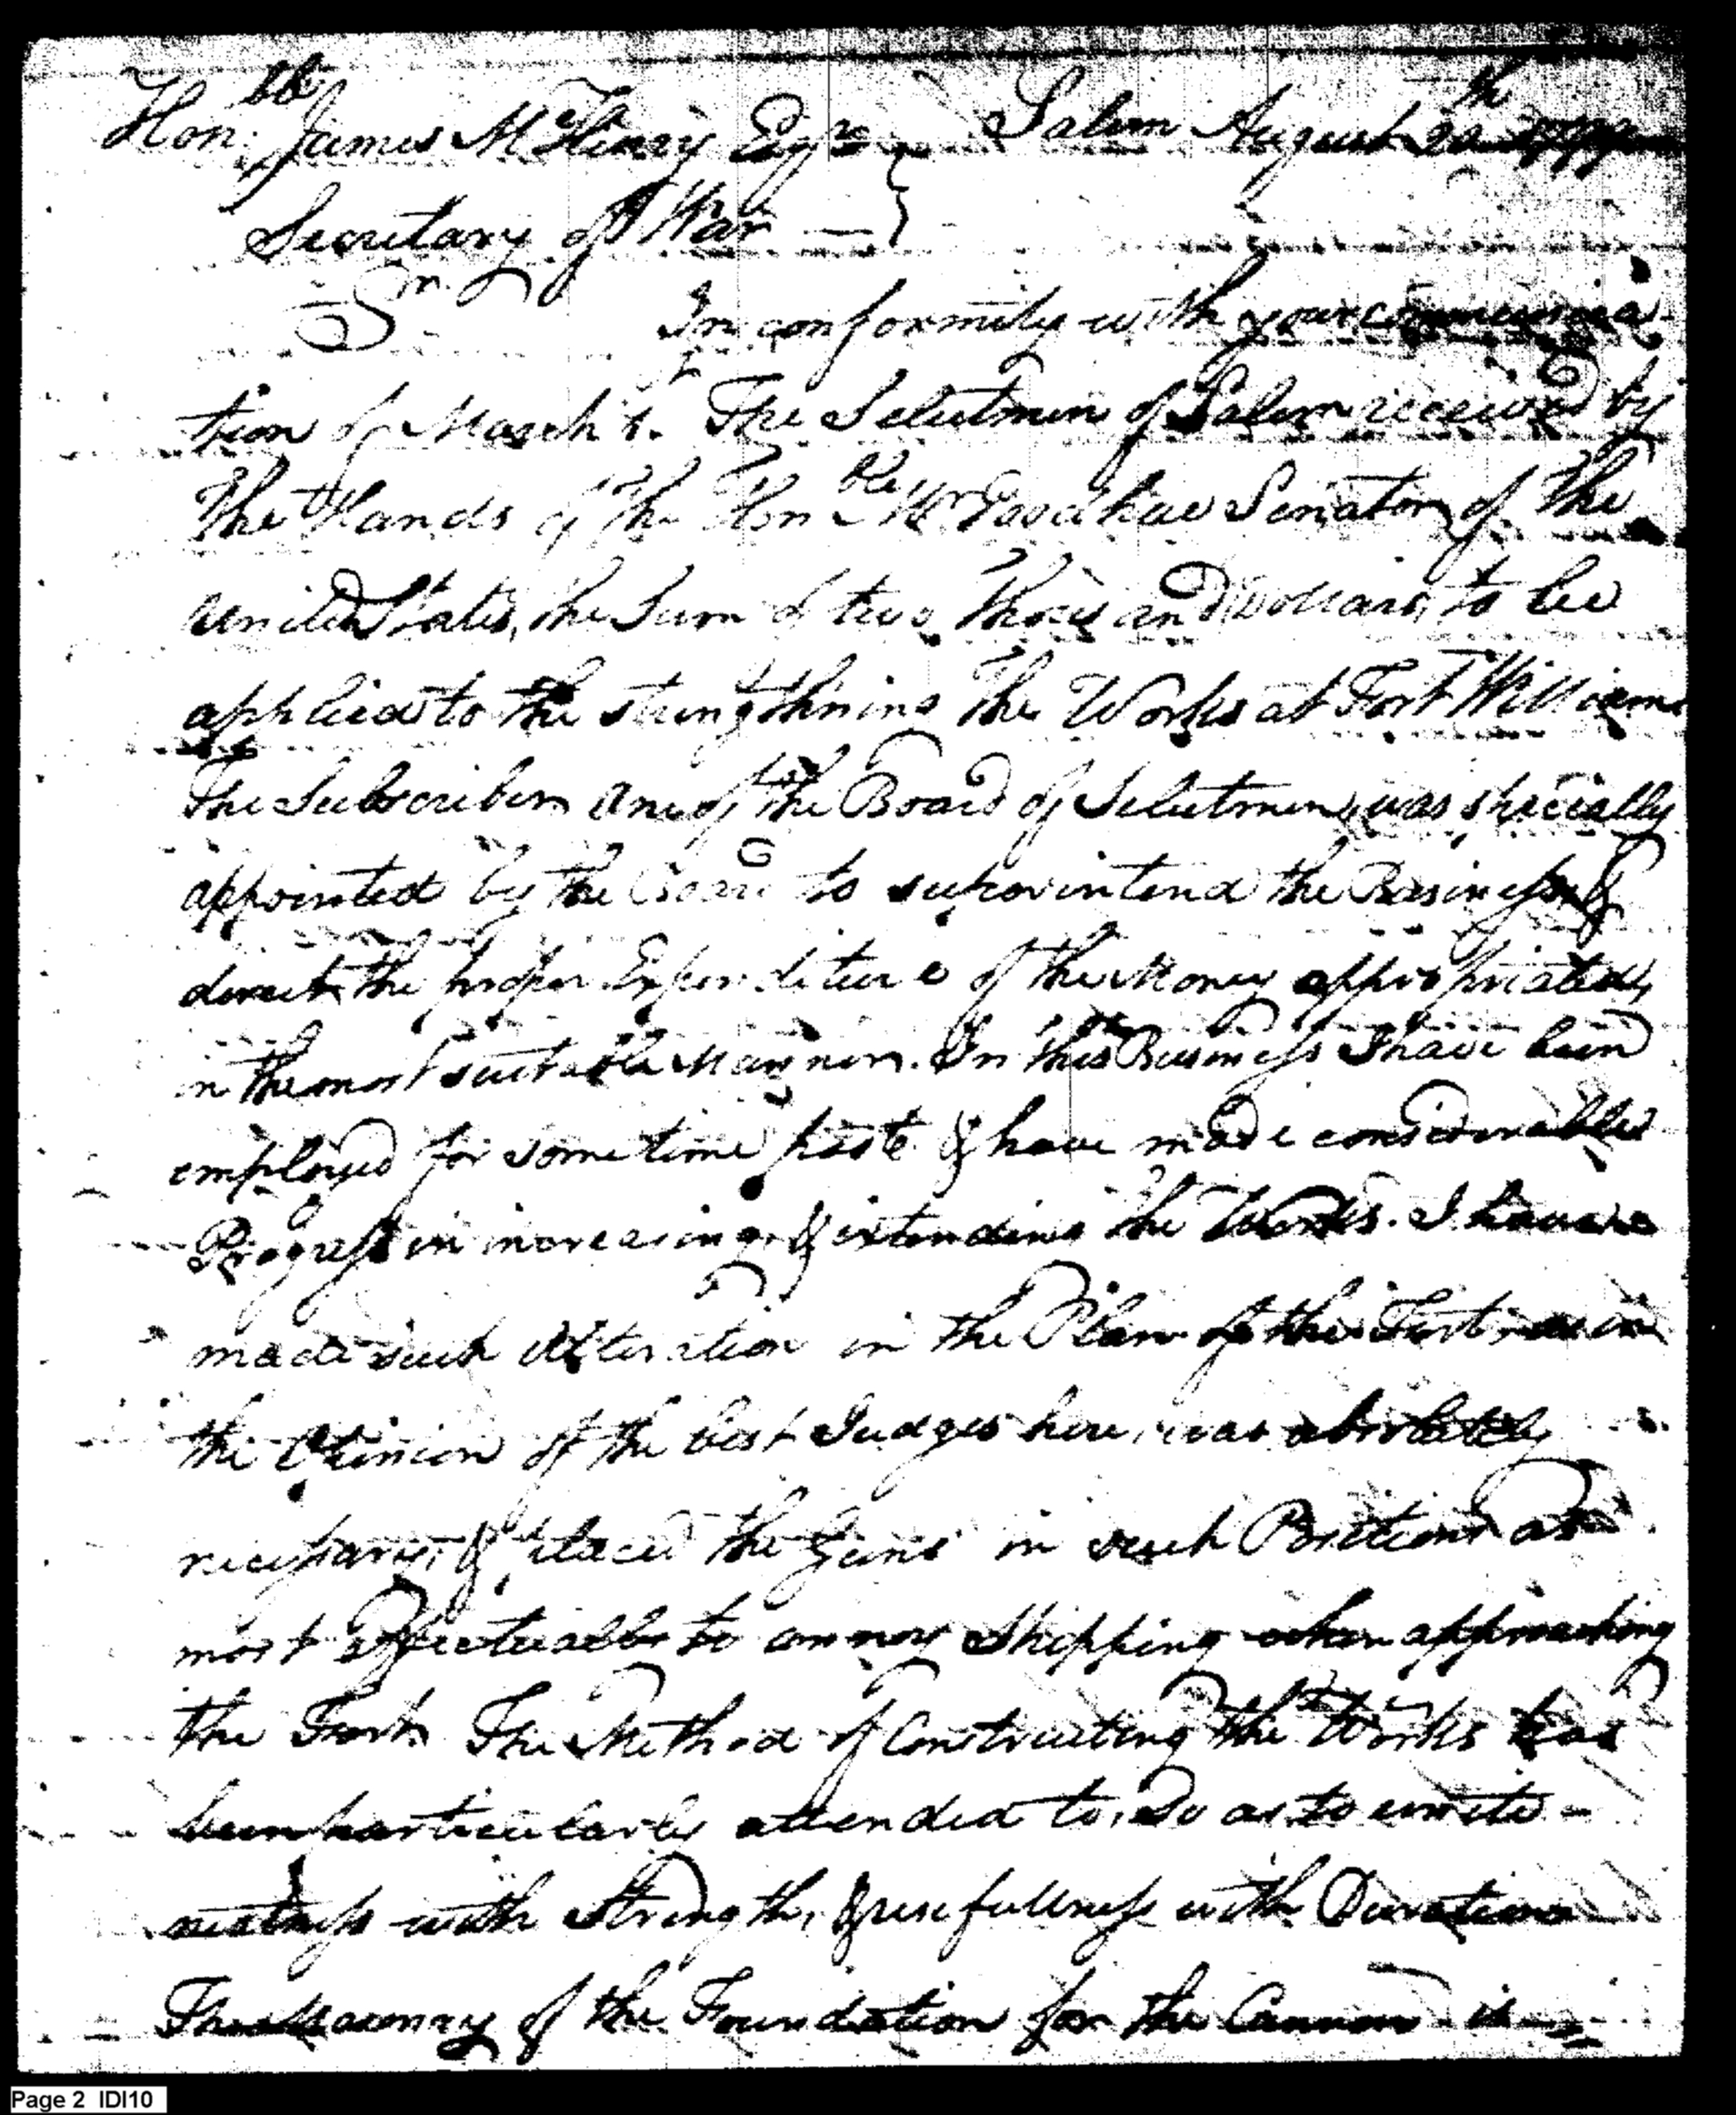 Hon.ble James McHenry Esqre Salem August 22th 1799
Secretary of War
Sir
In conformity with your communica-
tion of March 1. The Selectmen of Salem received by
the Hands of the Honble Mr Goodhue Senator of the
United States, the Sum of two Thousand Dollars, to be
applied to the strengthning the Works at Fort William
The Subscriber one of the Board of Selectmen, was specially
appointed by the Board to superintend the Business &
direct the proper Expenditure of the Money appropriated,
in the most suitable Manner. In this Business I have been
employed for some time past & have made considerable
Progress in increasing & extending the Works. I have
made such Alteration in the Plan of the Fort as in
the Opinion of the best Judges here, was absolutely
necessary, & placed the Guns in such Positions as
most effectually to annoy Shipping when approaching
the Fort. The Method of Constructing the Works has
been particularly attended to, So as to unite
neatness with Strength, & usefullness with Duration
The Masonry of the Foundation for the Cannon is
Page 2 IDI10